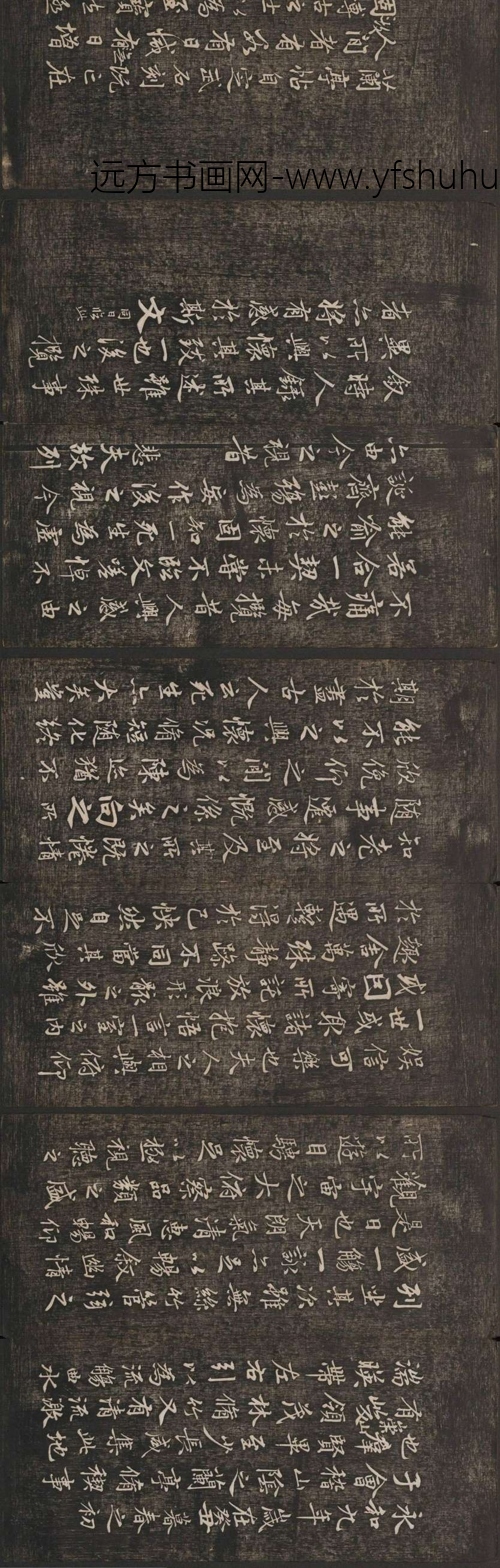 永和九年歲在癸丑暮春之初
于會稽山陰之蘭亭脩禊事
也群賢畢至少長咸集此地
有崇山峻領茂林脩竹又有清流激
湍暎帶左右引以為流觴曲水
列坐其次雖無絲竹管弦之
盛一觴一詠亦足以暢敘幽情
是日也天朗氣清惠風和暢仰
觀宇宙之大俯察品類之盛
所以遊目騁懷足以極視聽之
娛信可樂也夫人之相與俯仰
一世或取諸懷抱悟言一室之內
或因寄所託放浪形骸之外雖
趣舍萬殊靜躁不同當其欣
於所遇蹔得於己怏然自足不
知老之將至及其所之既惓情
隨事遷感慨係之矣向之所
欣俛仰之間以為陳迹猶不
能不以之興懷況脩短隨化終
期於盡古人云死生亦大矣豈
不痛哉每攬昔人興感之由
若合一契未嘗不臨文嗟悼不
能喻之於懷固知一死生為虛
誕齊彭殤為妄作後之視今
亦由今之視昔悲夫故列
敘時人錄其所述雖世殊事
異所以興懷其致一也後之攬
者亦將有感於斯文
蘭亭帖自定武石刻既亡在
人間者有數有日減無日增
远方书画网-www.yfshuhu